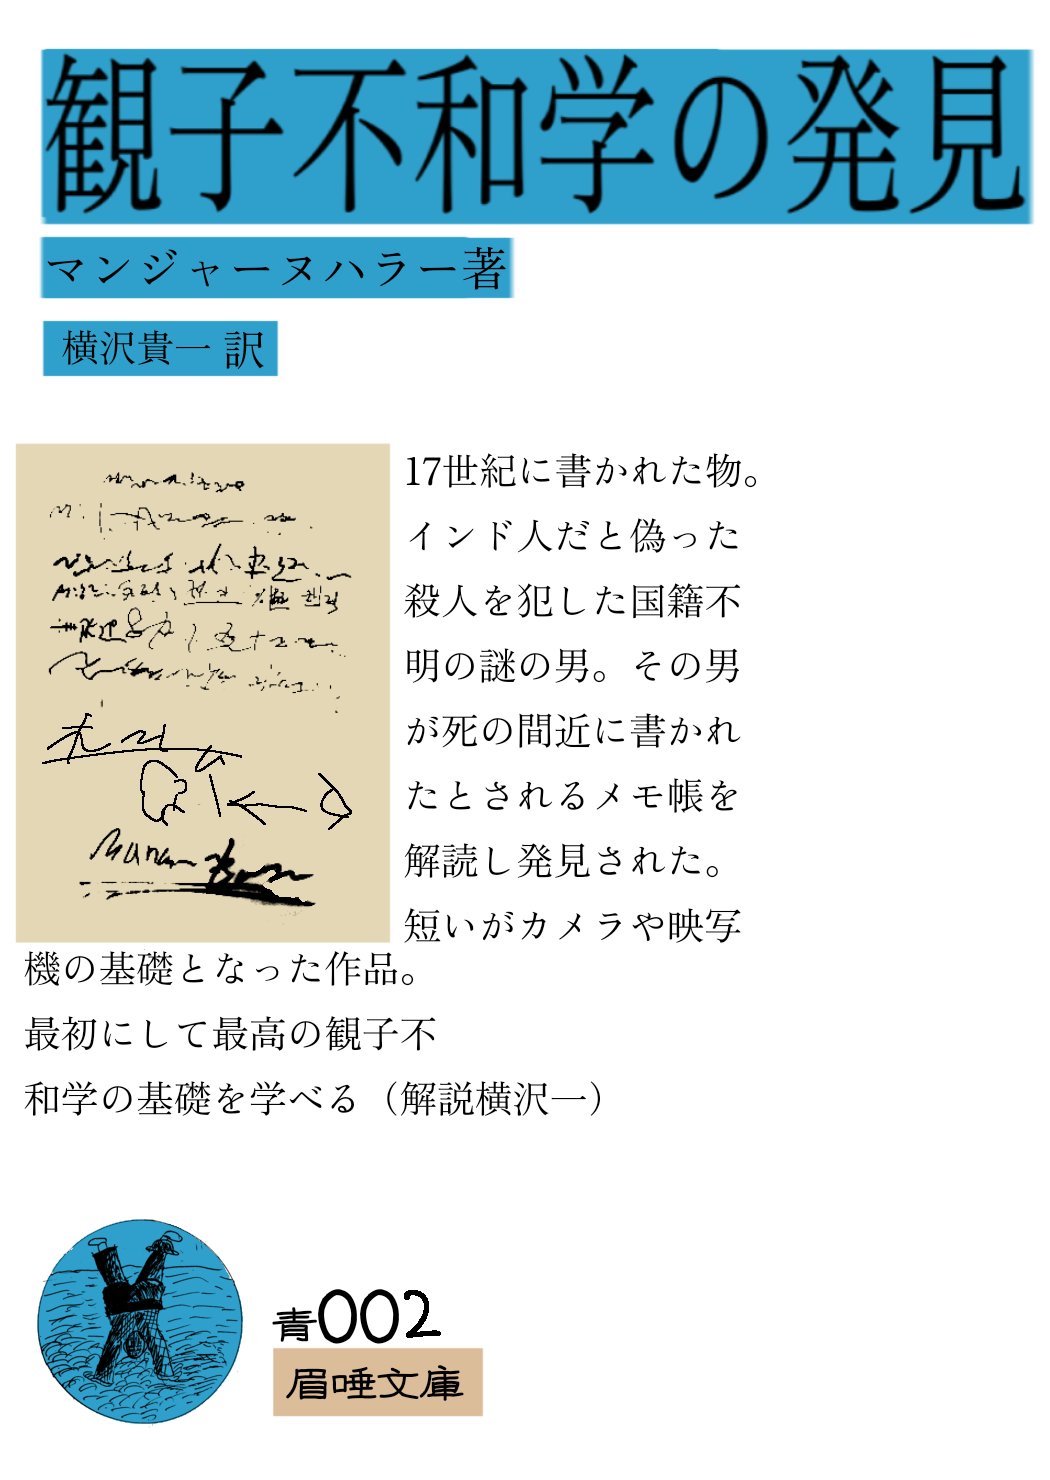 観子不和学の発見
マンジャーヌハラー著
横沢貴一 訳
17世紀に書かれた物。
インド人だと偽った
殺人を犯した国籍不
明の謎の男。その男
が死の間近に書かれ
たとされるメモ帳を
解読し発見された。
短いがカメラや映写
機の基礎となった作品。
最初にして最高の観子不
和学の基礎を学べる（解説横沢一）
青002
眉唾文庫